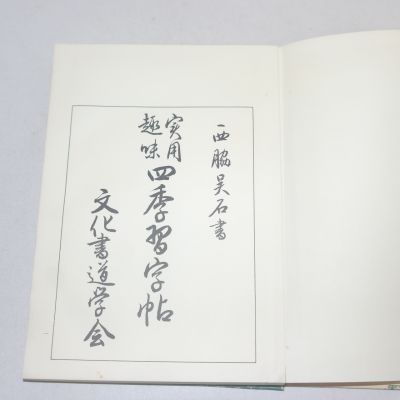 西脇呉石書
実用
趣味
四季習字帖
文化書道学会